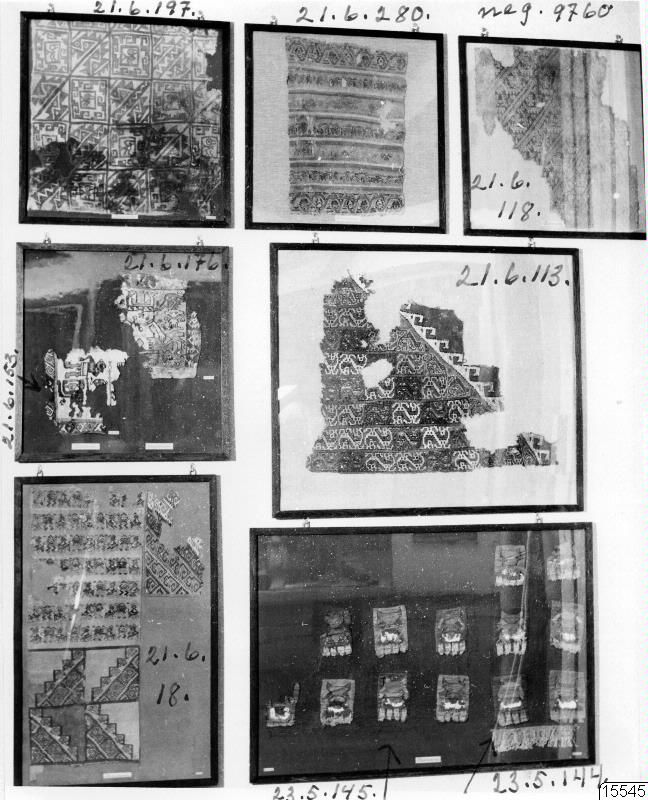 21.6.197.
21.6.280.
neg. 9760
21.6.
118.
21.6.176.
21.6.113.
21.6.183.
21.6.
18.
23.5.145.
23.5.144.
15545